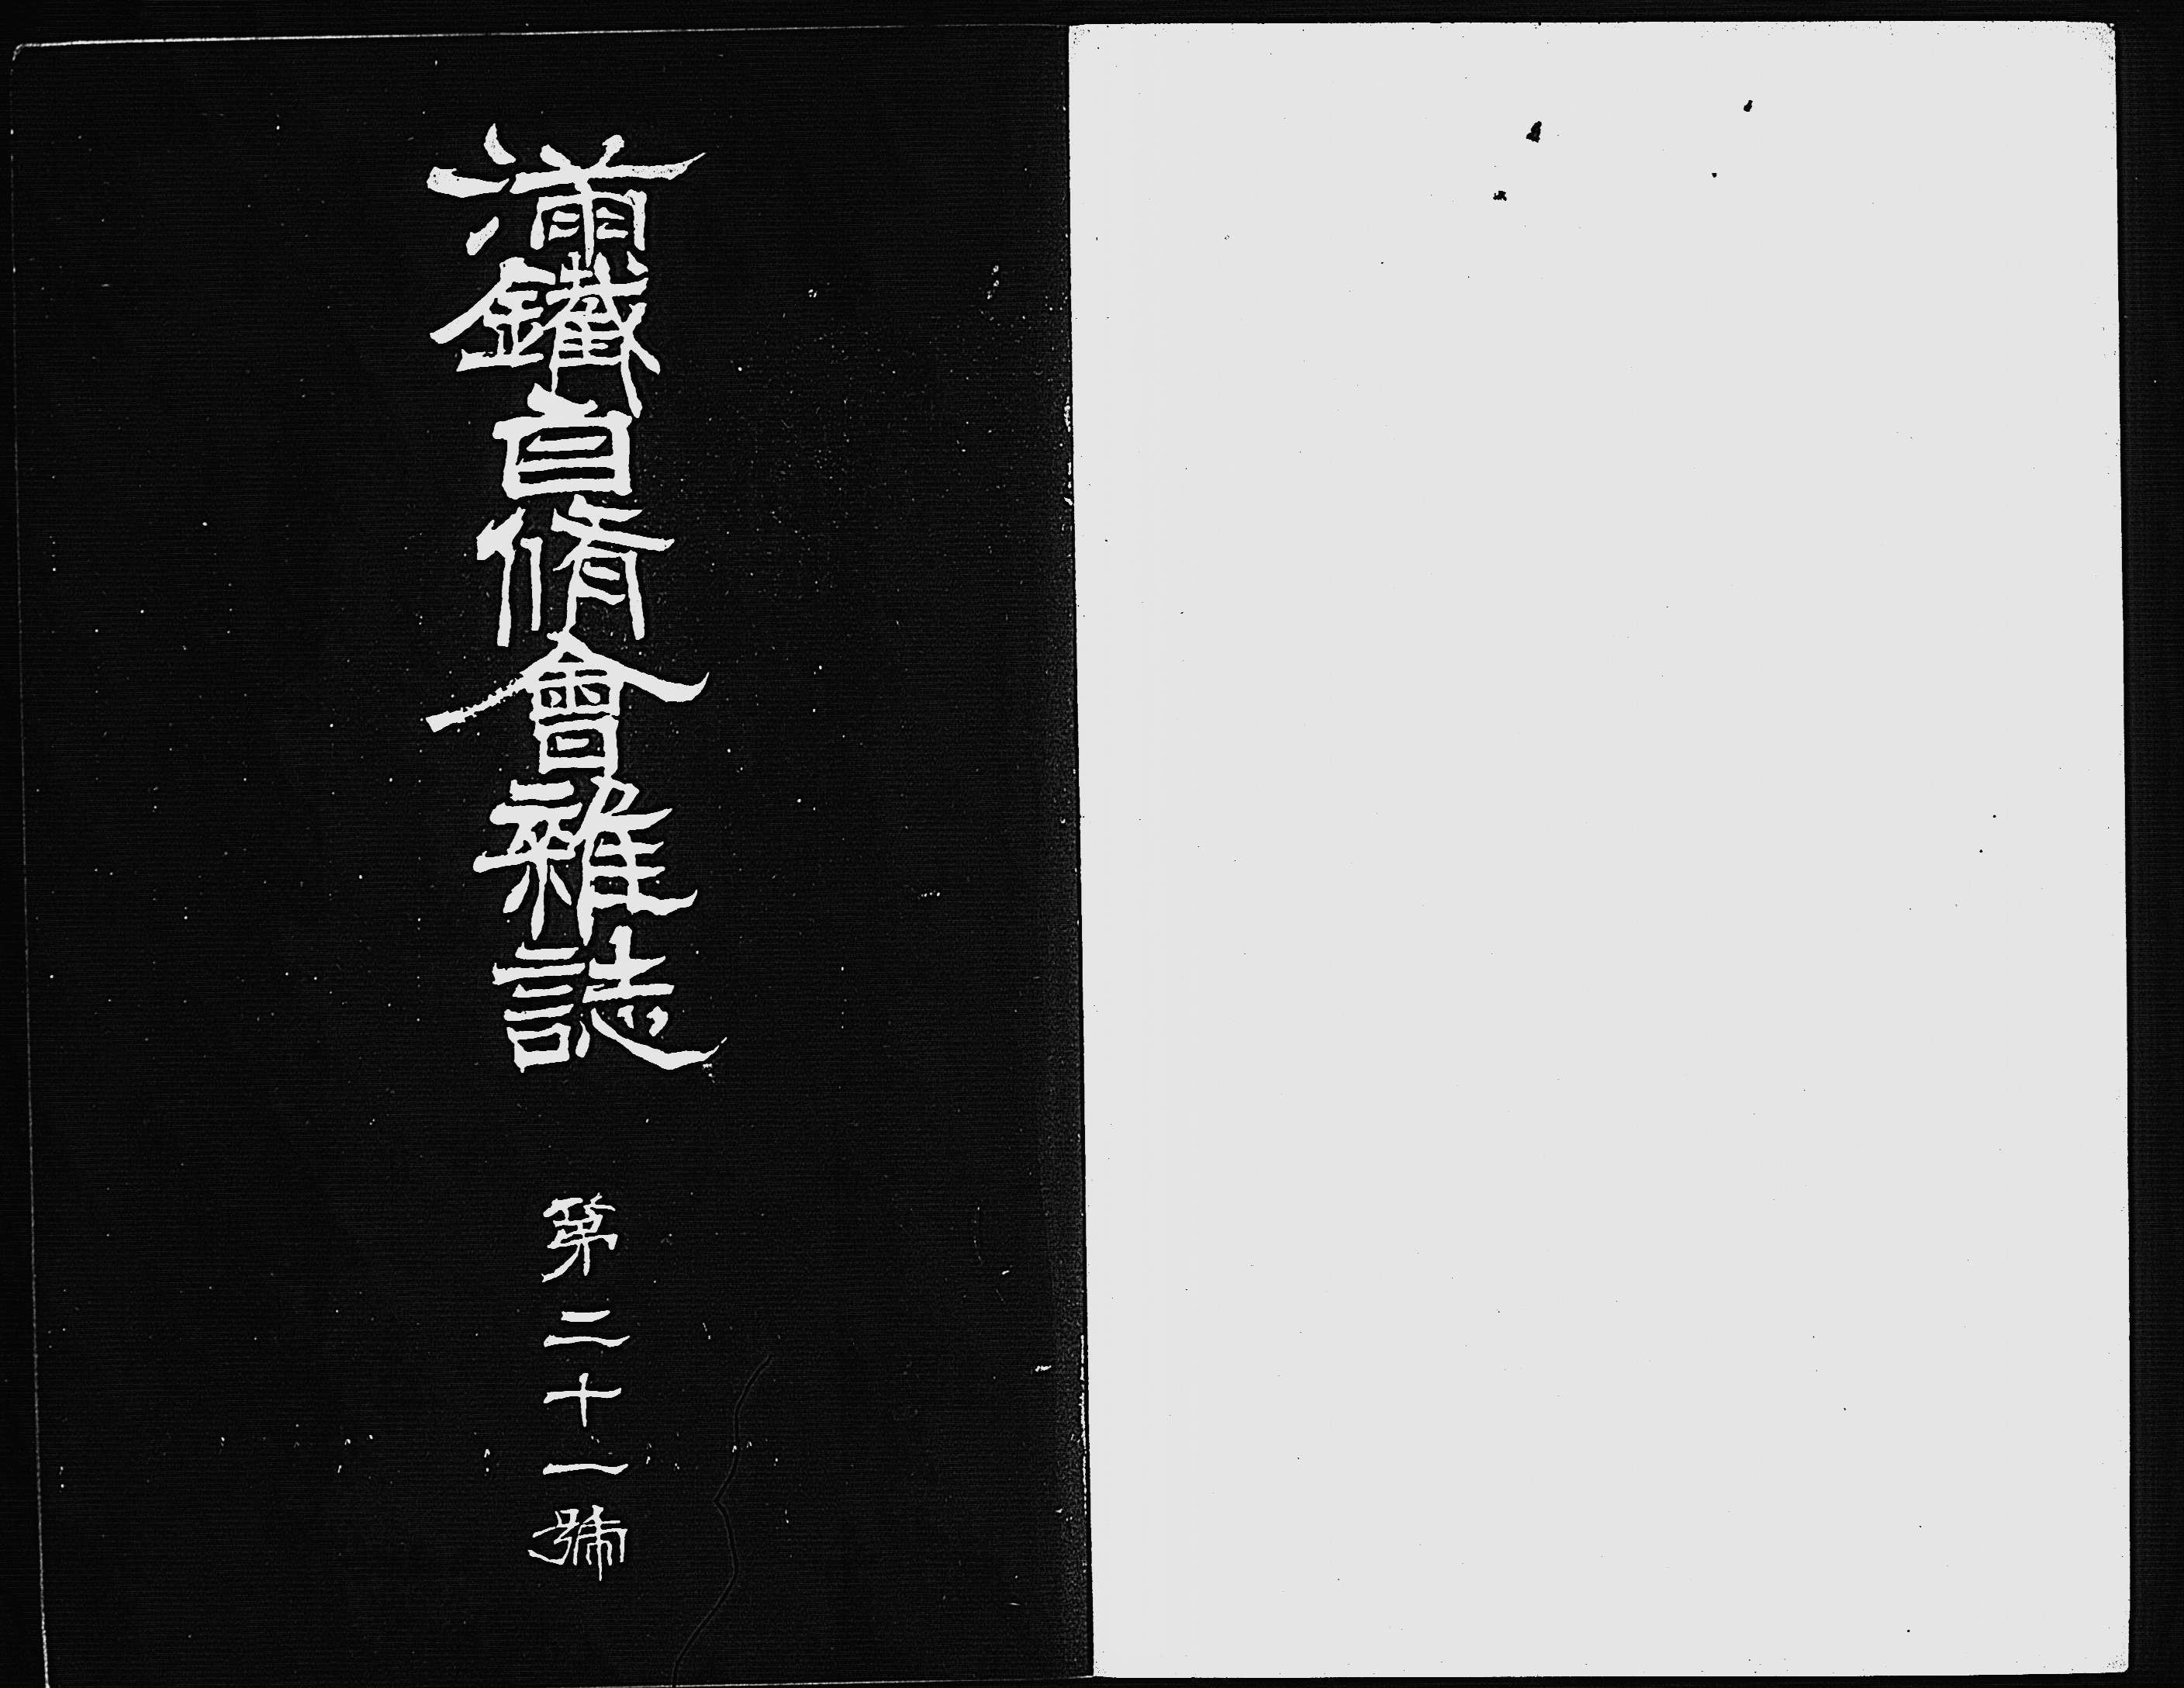 満鐵自脩會雜誌
第二十一號